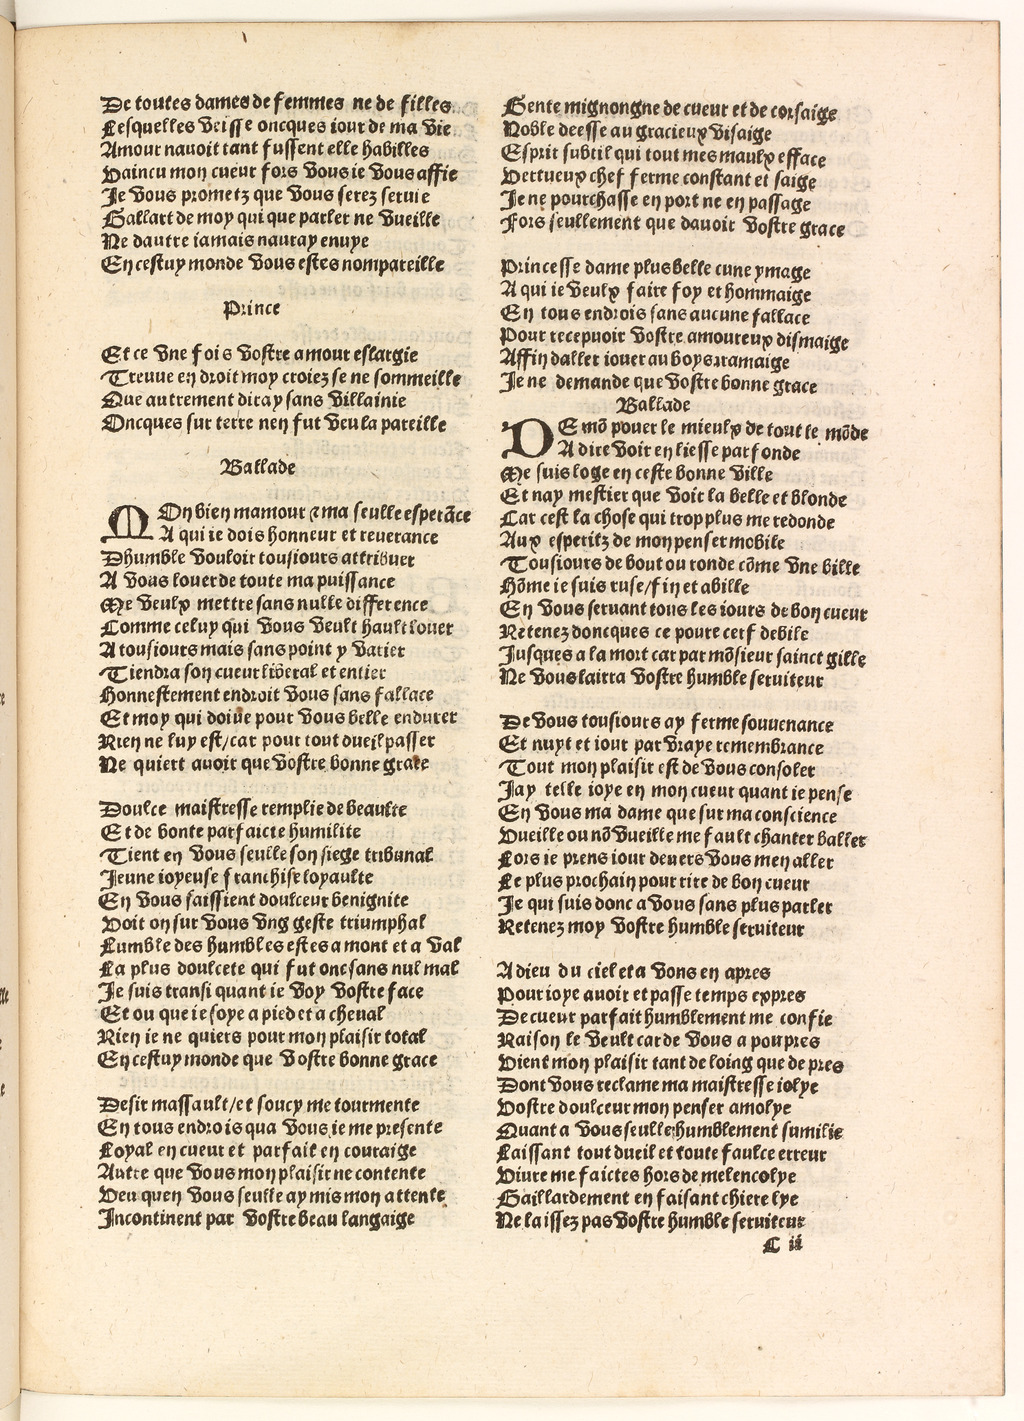 De toutes dames de femmes ne de filles
Lesquelles veisse oncques iour de ma vie
Amour nauoit tant fussent elle habilles
Vaincu mon cueur fors vous ie vous affie
Je vous prometz que vous serez seruie
Gallart de moy qui que parler ne vueille
Ne dautre iamais nauray enuye
En cestuy monde vous estes nompareille
Prince
Et ce vne fois vostre amour eslargie
Treuue en droit moy croiez se ne sommeille
Que autrement diray sans villainie
Oncques sur terre nen fut veu la pareille
Ballade
MOn bien mamour ⁊ ma seulle esperāce
A qui ie dois honneur et reuerance
Dhumble vouloir tousiours attribuer
A vous louer de toute ma puissance
Me veulx mettre sans nulle difference
Comme celuy qui vous veult hault louer
A tousiours mais sans point y varier
Tiendra son cueur liberal et entier
Honnestement endroit vous sans fallace
Et moy qui doiue pour vous belle endurer
Rien ne luy est/car pour tout dueil passer
Ne quiert auoir que vostre bonne grace
Doulce maistresse remplie de beaulte
Et de bonte parfaicte humilite
Tient en vous seulle son siege tribunal
Jeune ioyeuse franchise loyaulte
En vous faissient doulceur benignite
Voit on sur vous vng geste triumphal
Lumble des humbles estes a mont et a val
La plus doulcete qui fut onc sans nul mal
Je suis transi quant ie voy vostre face
Et ou que ie soye a pied et a cheual
Rien ie ne quiers pour mon plaisir total
En cestuy monde que vostre bonne grace
Desir massault/et soucy me tourmente
En tous endrois qua vous ie me presente
Loyal en cueur et parfait en couraige
Autre que vous mon plaisir ne contente
Veu quen vous seulle ay mis mon attente
Incontinent par vostre beau langaige
Gente mignongne de cueur et de corsaige
Noble deesse au gracieux visaige
Esprit subtil qui tout mes maulx efface
Vertueux chef ferme constant et saige
Je ne pourchasse en port ne en passage
Fors seullement que dauoir vostre grace
Princesse dame plus belle cune ymage
A qui ie veulx faire foy et hommaige
En tous endrois sans aucune fallace
Pour recepuoir vostre amoureux dismaige
Affin daller iouer au boys ramaige
Je ne demande que vostre bonne grace
Ballade
DE mō pouer le mieulx de tout le mōde
A dire voir en liesse parfonde
Me suis loge en ceste bonne ville
Et nay mestier que voir la belle et blonde
Car cest la chose qui trop plus me redonde
Aux esperitz de mon penser mobile
Tousiours de bout ou ronde cōme vne bille
Hōme ie suis ruse/fin et abille
En vous seruant tous les iours de bon cueur
Retenez doncques ce poure cerf debile
Jusques a la mort car par mōsieur sainct gille
Ne vous lairra vostre humble seruiteur
De vous tousiours ay ferme souuenance
Et nuyt et iour par vraye remembrance
Tout mon plaisir est de vous consoler
Jay telle ioye en mon cueur quant ie pense
En vous ma dame que sur ma conscience
Vueille ou nō vueille me fault chanter baller
Lors ie prens iour deuers vous men aller
Le plus prochain pour rire de bon cueur
Je qui suis donc a vous sans plus parler
Retenez moy vostre humble seruiteur
Adieu du ciel et a vons en apres
Pour ioye auoir et passe temps expres
De cueur parfait humblement me confie
Raison le veult car de vous a pourpres
Vient mon plaisir tant de loing que de pres
Dont vous reclame ma maistresse iolye
Vostre doulceur mon penser amolye
Quant a vous seulle humblement sumilie
Laissant tout dueil et toute faulce erreur
Viure me faictes hors de melencolye
Gaillardement en faisant chiere lye
Ne laissez pas vostre humble seruiteur
C ii